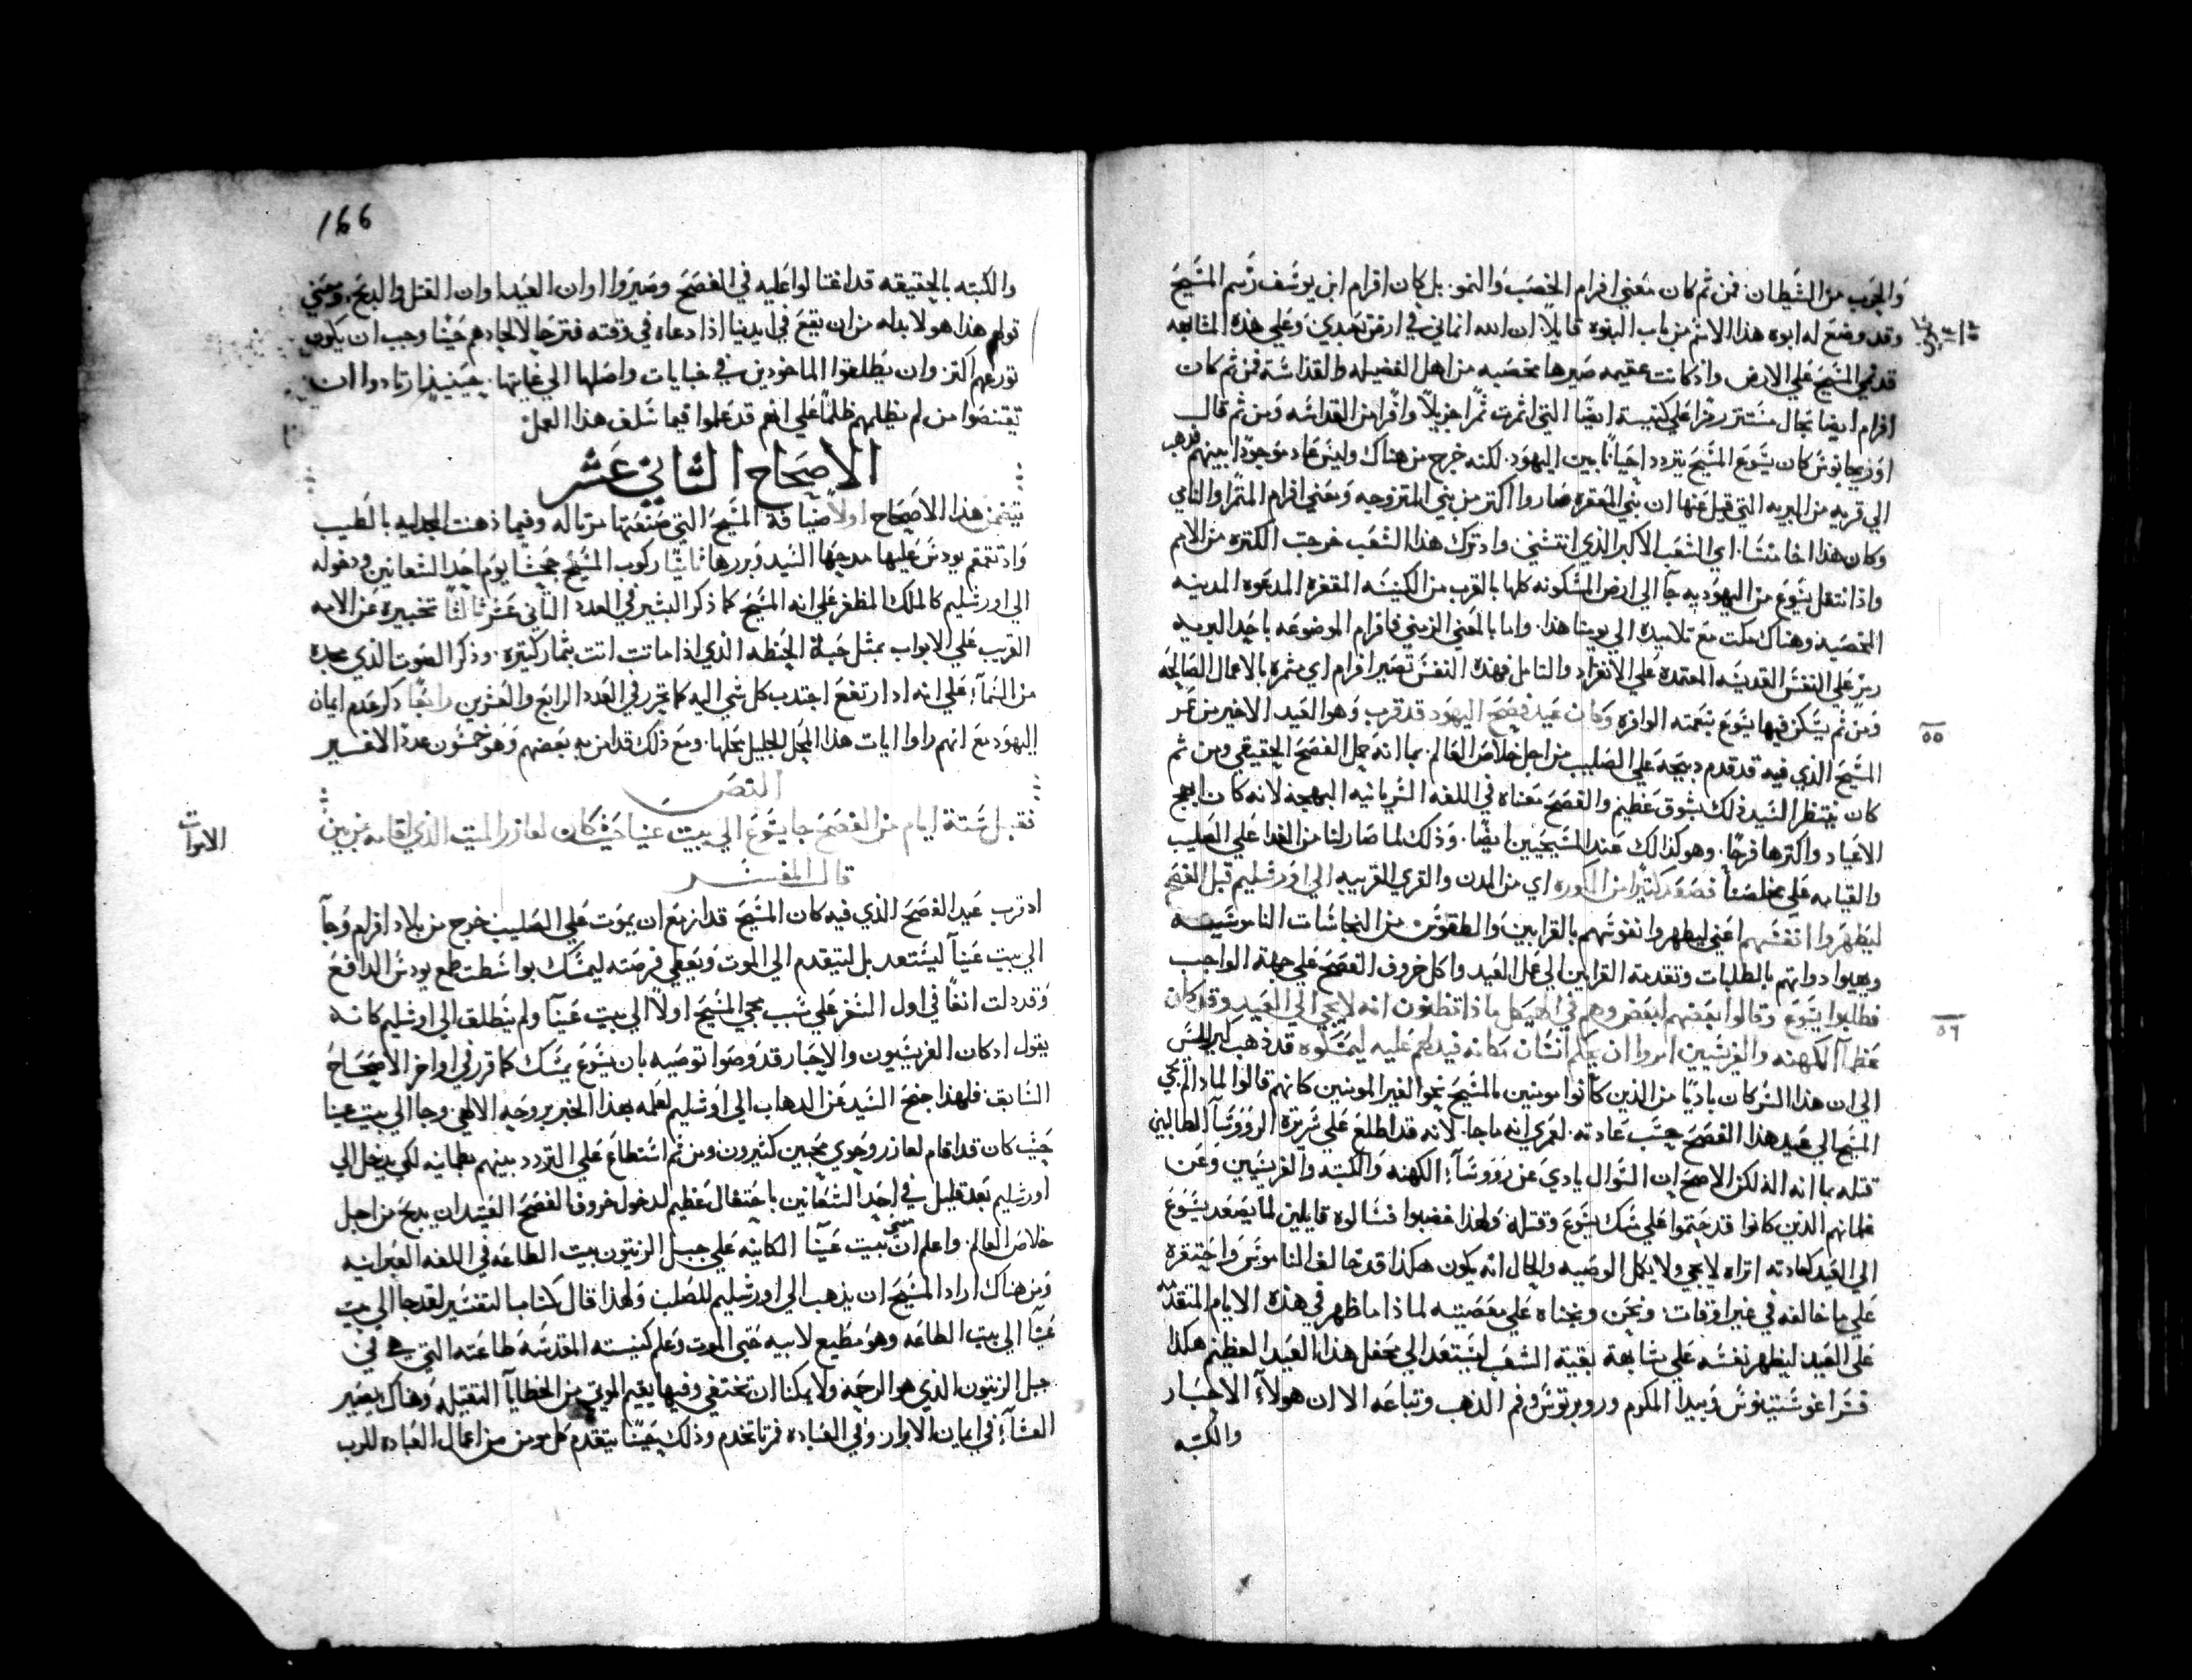 والجرب من الشيطان فمن ثم كان معني افرام الخصب والنمو. بل كان افرام ابن يوسف رسم المسيح
وقد وضع له ابوه هذا الاسم من باب النبوه قايلا ان الله انماني في ارض تعبدي وعلي هذه المشابهه
قد نمي المسيح علي الارض واذ كانت عقيمه صيرها مخصبه من اهل الفضيله والقداسه فمن ثم كان
افرام ايضا بحال مستتر رمزا علي كنيسته ايضا التي اثمرت ثمرا جزيلا وافرا من القداسه ومن ثم قال
اوريجانوس كان يسوع المسيح يتردد احيانا بين اليهود. لكنه خرج من هناك وليس عاد موجودا بينهم فذهب
الي قريه من البريه التي قيل عنها ان بني المقفره صاروا اكتر من بني المتزوجه ومعني افرام المثمر او النامي
وكان هذا اخا منسا. اي الشعب الاكبر الذي انتسي. واذ ترك هذا الشعب خرجت الكتره من الامم
واذ انتقل يسوع من اليهوديه جآ الي ارض المسكونه كلها بالقرب من الكنيسه المقفره المدعوه المدينه
المخصبه وهناك مكث مع تلاميذه الي يومنا هذا. واما بالمعني الرمزي فافرام الموضوعه باحد البريه
رمز علي النفس القديسه المعتمده علي الانفراد والتامل فهذه النفس تصير افرام اي مثمره بالاعمال الصالحه
ومن ثم يسكن فيها يسوع بنعمته الوافره وكان عيد فصح اليهود قد قرب وهو العيد الاخير من عمر
٥٥
المسيح الذي فيه قد قدم ذبيحه علي الصليب من اجل خلاص العالم. بما انه حمل الفصح الحقيقي ومن ثم
كان ينتظر السيد ذلك بشوق عظيم والفصح معناه في اللغه السريانيه البهجه لانه كان ابهج
الاعياد واكترها فرحا. وهو كذالك عند المسيحيين ايضا. وذلك لما صار لنا من الفدا علي الصليب
والقيامه علي مخلصنا فصعد كثيرا من الكوره اي من المدن والقري القريبه الي اورشليم قبل الفصح
ليطهروا انفسهم اعني ليطهروا نفوسهم بالقرابين والطقوس من النجاسات الناموسيه
ويهيوا دواتهم بالطلبات وتقدمة القرابين الي عمل العيد واكل خروف الفصح علي جهة الواجب
فطلبوا يسوع وقالوا بعضهم لبعض وهم في الهيكل ماذا تظنون انه لا يجي الي العيد وقد كان
٥٦
عظمآ الكهنه والفريسيين امروا ان يعلم انسان مكانه فيدلهم عليه ليمسكوه قد ذهب كيرللس
الي ان هذا السر كان باديا من الذين كانوا مومنين بالمسيح نحو الغير المومنين كانهم قالوا لماذا لم يجي
المسيح الي عيد هذا الفصح حسب عادته. لعمري انه ما جا. لانه قد اطلع علي سريرة الروسآ الطالبين
قتله بما انه اله لكن الاصح ان السوال بادي عن روسآ الكهنه والكتبه والفريسيين وعن
غلمانهم الذين كانوا قد حتموا علي مسك يسوع وقتله ولهذا غضبوا فسالوه قايلين لما يصعد يسوع
الي العيد كعادته اتراه لا يجي ولا يكمل الوصيه والحال انه يكون هكذا قد خالف الناموس واحتقره
علي ما خالفه في غير اوقات: ونحن وبخناه علي معصيته لماذا ما ظهر في هذه الايام المتقدمه
علي العيد: ليظهر نفسه علي مشابهة بقية الشعب ليستعد الي محفل هذا العيد العظيم هكذا
فسر اغوستينوس وبيدا المكرم وروبرتوس وفم الذهب وتباعه الا ان هولآء الاحبار
والكتبه
166
والكتبه بالحقيقه قد اغتالوا عليه في الفصح وصيروا اوان العيد اوان القتل والذبح. ومعني
قولهم هذا هو لا بد له من ان يقع في ايدينا اذا دعاه في وقته فترجا لاجلهم حيثما وجب ان يكون
تورعهم اكتر وان يطلقوا الماخوذين في خبايات واصلها الي غاياتها. حينيذ ارتادوا ان
يقتنصوا من لم يظلمهم ظلما علي انهم قد عملوا فيما سلف هذا العمل
الاصحاح الثاني عشر
يتضمن هذا الاصحاح اولا ضيافة المسيح التي صنعتها مرتا له وفيما دهنت المجدليه بالطيب
واد تقمقم يودس عليها مدحها السيد وبررها ثانيا ركوب المسيح جحشا يوم احد الشعانين ودخوله
الي اورشليم كالملك المظفر علي انه المسيح كما ذكر البشير في العدد الثاني عشر ثالثا تخبيره عن الامه
القريب علي الابواب بمثل حبة الحنطه الذي اذا ماتت اتت بثمار كتيره. وذكر الصوت الذي مجده
من السمآء علي انه اذ ارتفع اجتذب كل شي اليه كما تحرر في العدد الرابع والعشرين رابعا ذكر عدم ايمان
اليهود مع انهم راوا ايات هذا المبجل الجليل محلها. ومع ذلك قد امن به بعضهم وهو خمسون عددا لا غير
النص
فقبل ستة ايام من الفصح جا يسوع الي بيت عنيا حيث كان لعازر الميت الذي اقامه من بين
الاموات
قال المفسر
اد قرب عيد الفصح الذي فيه كان المسيح قد ازمع ان يموت علي الصليب خرج من بلاد افرام وجآ
الي بيت عنيآ ليستعد بل ليتقدم الي الموت ويعطي فرصته ليمسك بواسطت طمع يودس الدافع
وقد دلت انفا في اول السفر علي سبب مجي المسيح اولا الي بيت عنيآ ولم ينطلق الي اورشليم كانه
يقول ادكان الفريسيون والاحبار قد وصوا توصيه بان يسوع يمسك كما قرر في اواخر الاصحاح
السابق فلهذا جنح السيد عن الدهاب الي اورشليم لعلمه بهذا الخبر بروحه الالهي وجا الي بيت عنيا
حيث كان قد اقام لعازر وحوي محبين كثيرون ومن ثم استطاع علي التردد بينهم بطمانيه لكي يدخل الي
اورشليم بعد قليل في احد الشعانين باحتفال عظيم لدخول خروف الفصح العتيد ان يدبح من اجل
خلاص العالم. واعلم ان معني بيت عنيآ الكاينه علي جبل الزيتون بيت الطاعه في اللغه العبرانيه
ومن هناك اراد المسيح ان يذهب الي اورشليم للصلب ولهذا قال كتاب التفسير لقد جا الي بيت
عنيآ الي بيت الطاعه وهو مطيع لابيه حتي الموت وعلم كنيسته المقدسه طاعته التي هي في
جبل الزيتون الذي هو الرحمه ولا يمكنا ان تختفي وفيها يقيم الموتي من الخطايآ الثقيله وهناك يصير
العشآء في ايمان الابرار وفي العباده مرتا تخدم وذلك حينما يتقدم كل مومن من اعمال العباده للرب